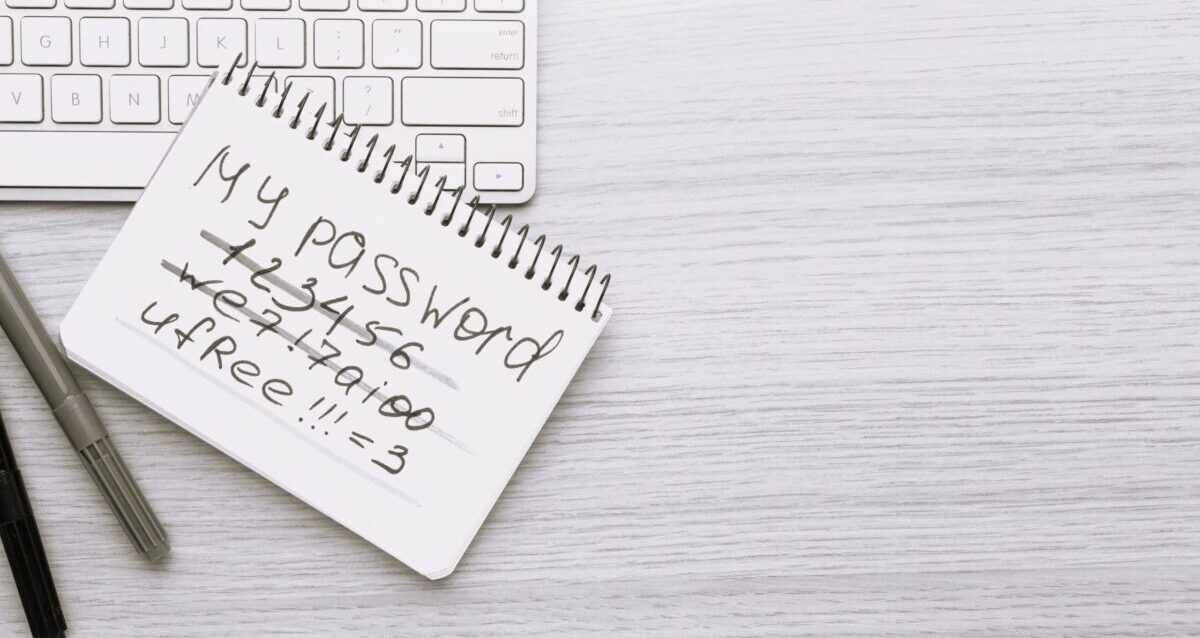 G H J K L : ; " ' enter return
V B N M ? / shift
My password
123456
we7!7aioo
ufRee!!!=3